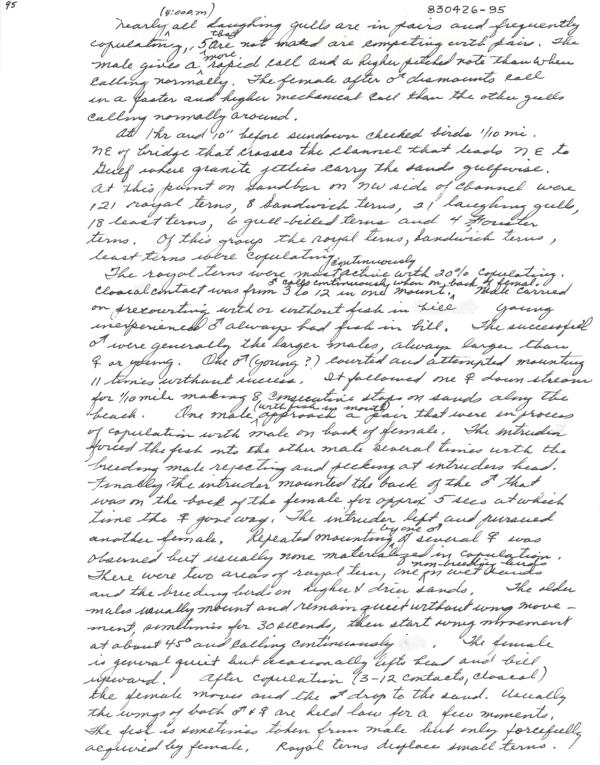 95
(4:00am) 830426-95
Nearly all laughing gulls are in pairs and frequently
copulating, 5 that are not mated are competing with pairs. The
male gives a more rapid call and a higher pitched note than when
calling normally. The female after ♂ dismounts call
in a faster and higher mechanical call than the other gulls
calling normally around.
At 1 hr and 10" before sundown checked birds 1/10 mi.
NE of bridge that crosses the channel that leads NE to
Gulf where granite jetties carry the sands gulfwise.
At this point on sandbar on NW side of channel were
121 royal terns, 8 Sandwich terns, 21 laughing gulls,
18 least terns, 6 gull-billed terns and 4 Forster
terns. Of this group the royal terns, Sandwich terns,
least terns were copulating continuously.
The royal terns were most active with 20% copulating.
Cloacal contact was from 3 to 12 in one mount. ♂ calls continuously when on back of female. Male carried
on precourting with or without fish in bill. Young
unexperienced ♂ always had fish in bill. The successful
♂ were generally the larger males, always larger than
♀ or young. One ♂ (young?) courted and attempted mounting
11 times without success. It followed one ♀ down stream
for 1/10 mile making 8 consecutive stops on sands along the
beach. One male (with fish in mouth) approach a pair that were in process
of copulation with male on back of female. The intruder
forced the fish into the other male several times with the
breeding male rejecting and pecking at intruders head.
Finally the intruder mounted the back of the ♂ that
was on the back of the female for approx 5 secs at which
time the ♀ gave way. The intruder left and pursued
another female. Repeated mounting by one ♂ of several ♀ was
observed but usually none materialized in copulation.
There were two areas of royal tern, non-breeding birds one on wet sands
and the breeding birds on higher & drier sands. The older
males usually mount and remain quiet without wing move-
ment, sometimes for 30 seconds, then start wing movement
at about 45° and calling continuously. The female
is general quiet but occasionally lifts head and bill
upward. After copulation (3-12 contacts, cloacal)
the female moves and the ♂ drop to the sand. Usually
the wings of both ♂ & ♀ are held low for a few moments.
The fish is sometimes taken from male but only forcefully
acquired by female. Royal terns displace small terns.